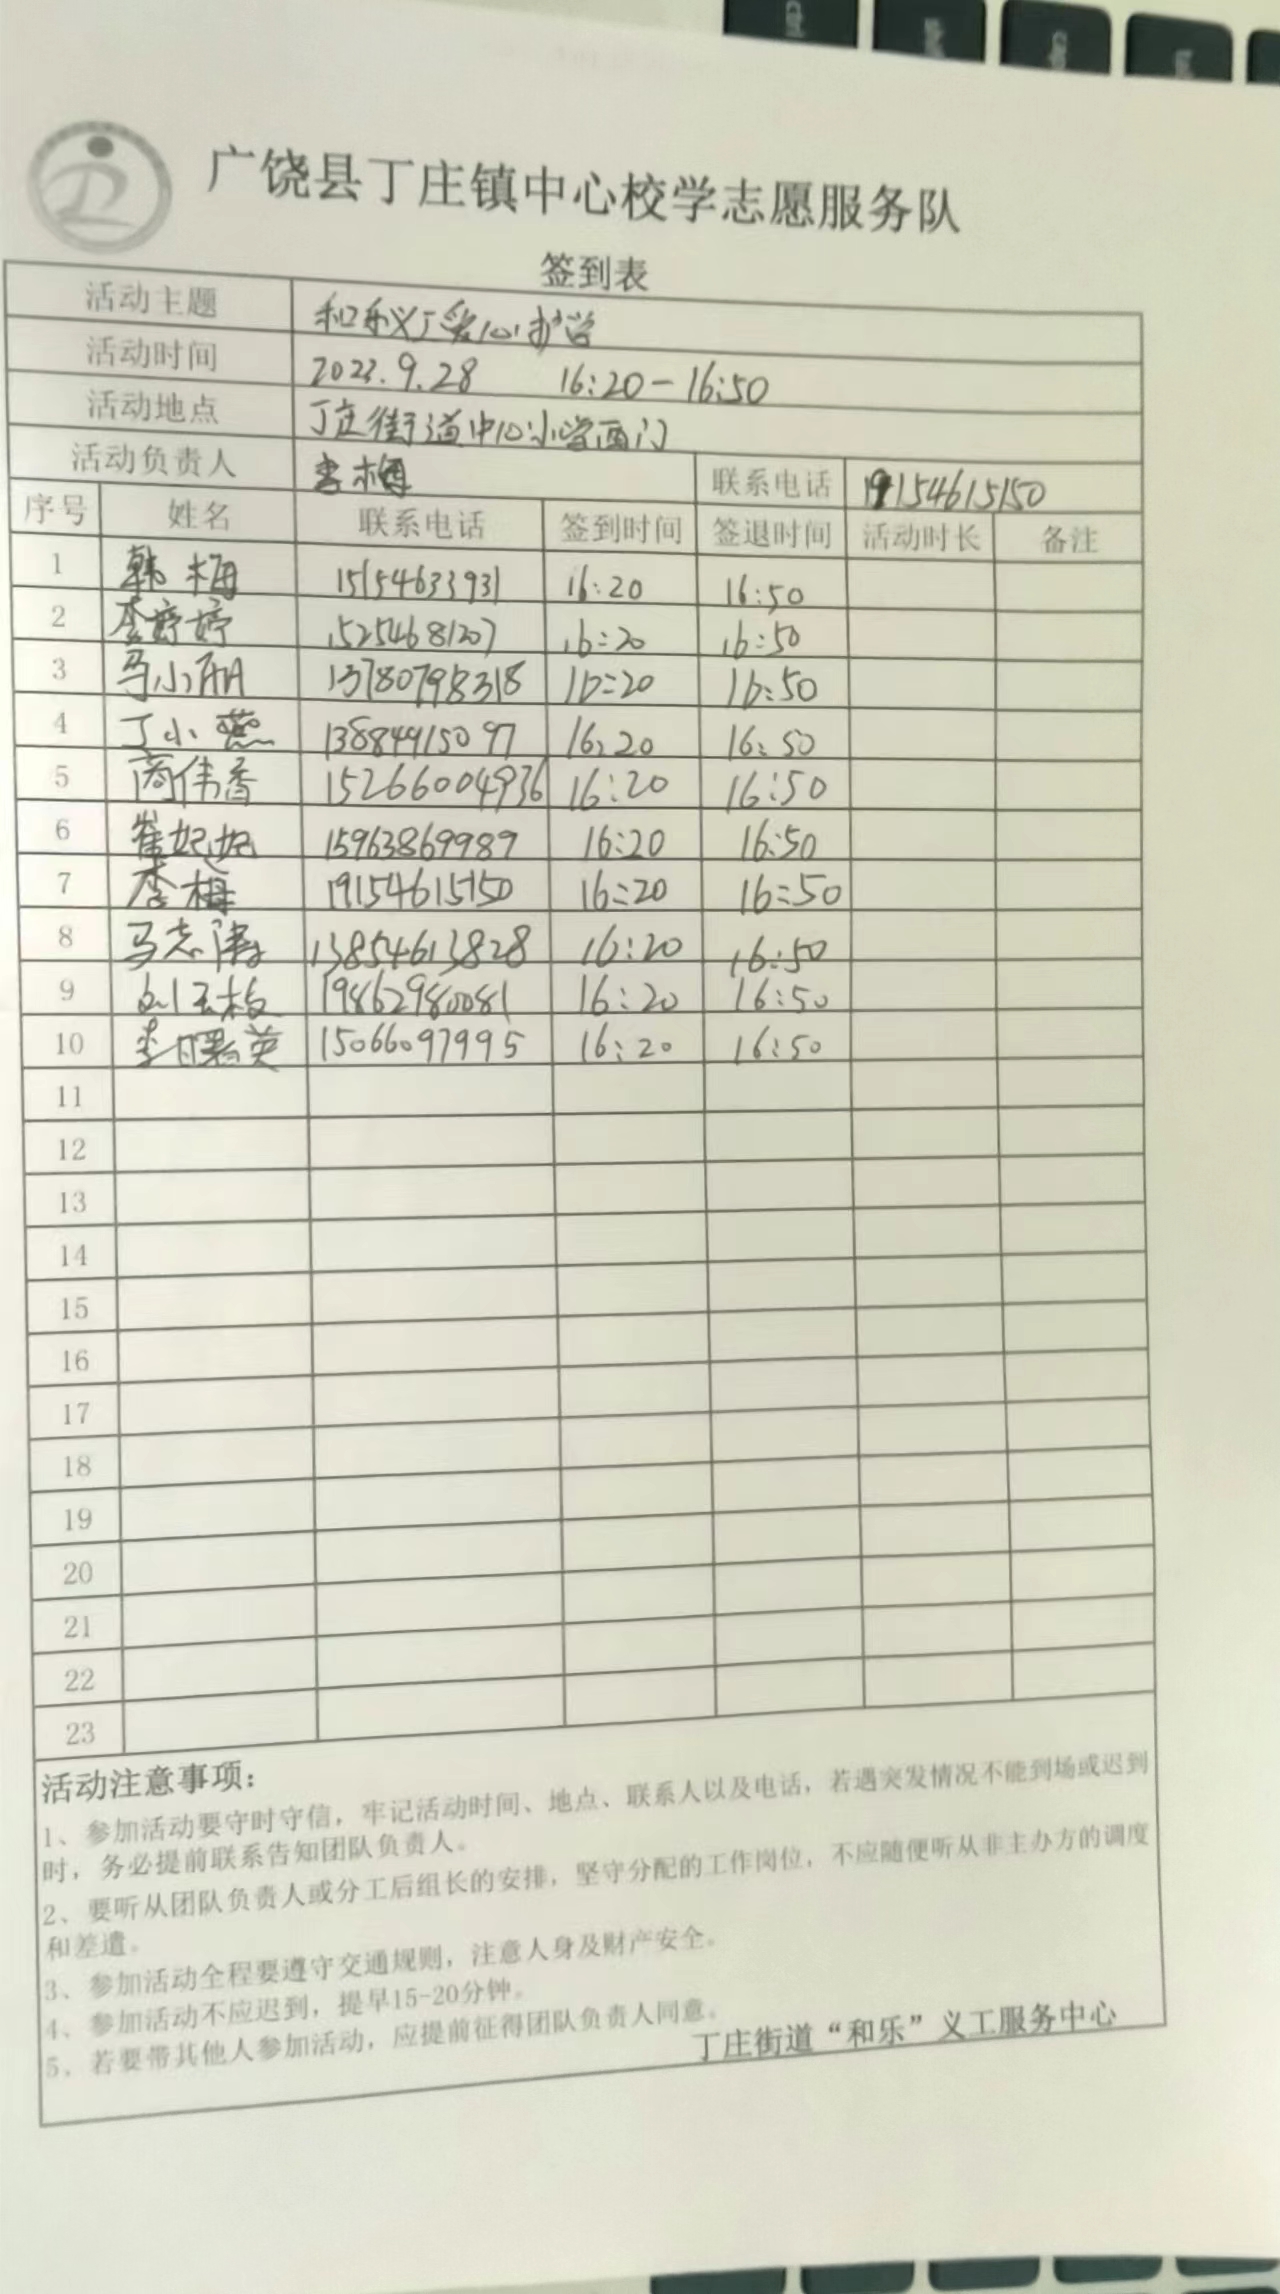 广饶县丁庄镇中心校学志愿服务队
签到表
活动主题 和乐义工爱心护学
活动时间 2023.9.28 16:20-16:50
活动地点 丁庄街道中心小学西门
活动负责人 李梅 联系电话 19154615150
序号 姓名 联系电话 签到时间 签退时间 活动时长 备注
1 韩梅 15154633931 16:20 16:50
2 李婷婷 15254681207 16:20 16:50
3 马小丽 13780798318 16:20 16:50
4 丁小燕 13884915097 16:20 16:50
5 商伟香 15266004936 16:20 16:50
6 崔妃妃 15963869989 16:20 16:50
7 李梅 19154615150 16:20 16:50
8 马志涛 13854613828 16:20 16:50
9 刘玉枝 19862980081 16:20 16:50
10 李曙英 15066097995 16:20 16:50
11
12
13
14
15
16
17
18
19
20
21
22
23
活动注意事项：
1、参加活动要守时守信，牢记活动时间、地点、联系人以及电话，若遇突发情况不能到场或迟到
时，务必提前联系告知团队负责人。
2、要听从团队负责人或分工后组长的安排，坚守分配的工作岗位，不应随便听从非主办方的调度
和差遣。
3、参加活动全程要遵守交通规则，注意人身及财产安全。
4、参加活动不应迟到，提早15-20分钟。
5、若要带其他人参加活动，应提前征得团队负责人同意。
丁庄街道“和乐”义工服务中心